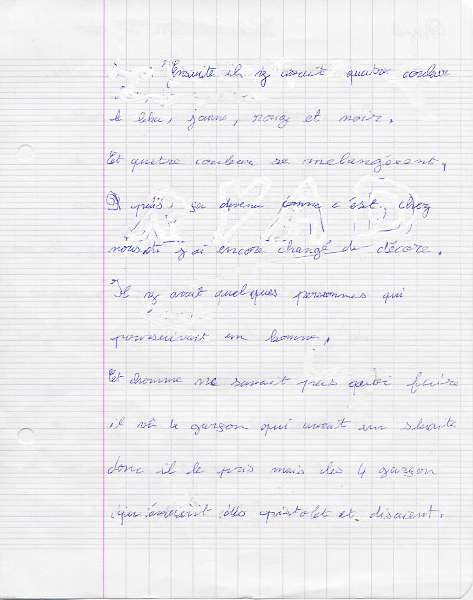 Ensuite il y avait quatre couleur
le bleu, jaune, rouge et noir.
Et quatre couleur se melangèrent,
puis, ça devenu comme c'est, chez
nous j'ai encore changé de décore.
Il y avait quelques personnes qui
poursuivait un homme.
Et homme ne savait pas quoi faire
il vit 4 garçon qui avait un skaite
donc il le pris mais les 4 garçon
qui avaient des pistolet et disaient.